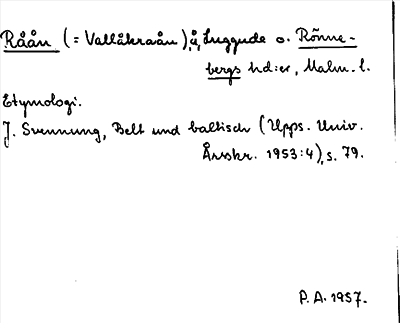 Råån (= Vallåkraån), å, Luggude o. Rönne-
bergs hd:er, Malm. l.
Etymologi.
J. Svennung, Belt und baltisch (Upps. Univ.
Årsskr. 1953:4), s. 79.
P. A. 1957.